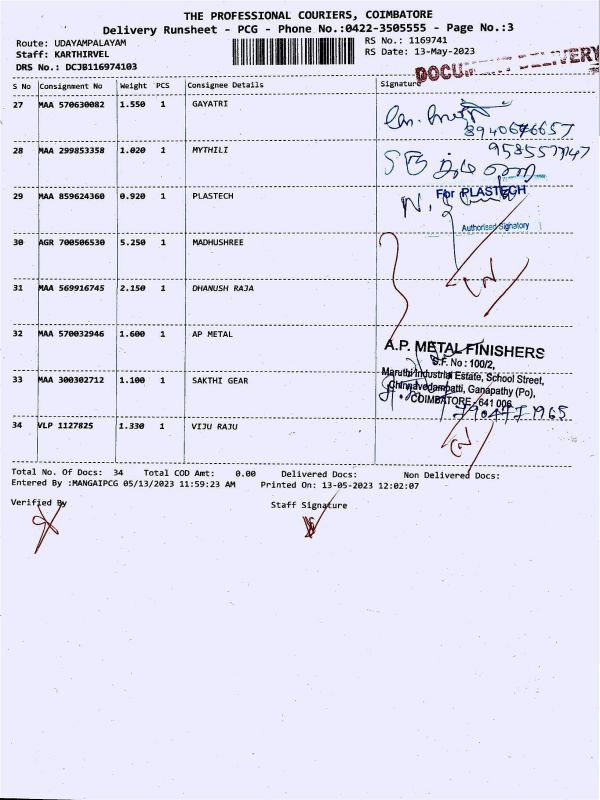 THE PROFESSIONAL COURIERS, COIMBATORE
Delivery Runsheet - PCG - Phone No.:0422-3505555 - Page No.:3
Route: UDAYAMPALAYAM
RS No.: 1169741
Staff: KARTHIRVEL
RS Date: 13-May-2023
DRS No.: DCJB116974103
DOCUMENT DELIVERY
S No Consignment No Weight PCS Consignee Details Signature
27 MAA 570630082 1.550 1 GAYATRI
28 MAA 299853358 1.020 1 MYTHILI
29 MAA 859624360 0.920 1 PLASTECH
For PLASTECH
Authorised Signatory
30 AGR 700506530 5.250 1 MADHUSHREE
31 MAA 569916745 2.150 1 DHANUSH RAJA
32 MAA 570032946 1.600 1 AP METAL
A.P. METAL FINISHERS
S.F. No : 100/2,
Maruthi Industrial Estate, School Street,
33 MAA 300302712 1.100 1 SAKTHI GEAR
Chinnavedampatti, Ganapathy (Po),
COIMBATORE - 641 006
34 VLP 1127825 1.330 1 VIJU RAJU
Total No. Of Docs: 34 Total COD Amt: 0.00 Delivered Docs: Non Delivered Docs:
Entered By :MANGAIPCG 05/13/2023 11:59:23 AM Printed On: 13-05-2023 12:02:07
Verified By Staff Signature